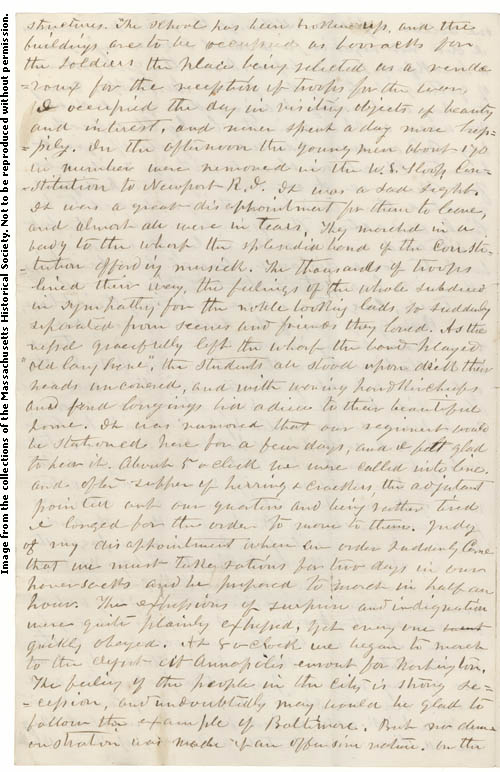 structures. The school has been broken up, and the
buildings are to be occupied as barracks for
the soldiers the place being selected as a rende
=vouz for the reception of troops for the war.
I occupied the day in visiting objects of beauty
and interest, and never spent a day more hap=
=pily. In the afternoon the young men about 170
in number were removed in the U.S. Sloop Con=
=stitution to Newport R.I. It was a sad sight.
It was a great disappointment for them to leave,
and almost all were in tears. They marched in a
body to the wharf the splendid band of the Consti=
=tution affording musick. The thousands of troops
lined their way, the feelings of the whole subdued
in sympathy for the noble looking lads so suddenly
seperated from scenes and friends they loved. As the
vessel gracefully left the wharf the band played
"old lang syne", the students all stood upon deck their
heads uncovered, and with waving handkerchiefs
and fond longings bid adieu to their beautiful
home. It was rumored that our regiment would
be stationed here for a few days, and I felt glad
to hear it. About 5 o clock we were called into line
and after supper of herring & crackers, the adjutant
pointed out our quarters and being rather tired
I longed for the order to move to them. Judge
of my disappointment when an order suddenly came
that we must take rations for two days in our
haversacks and be prepared to march in half an
hour. The expressions of surprise and indignation
were quite plainly expressed, yet every one
quickly obeyed. At 8 o clock we began to march
to the depot at Annapolis enrout for Washington.
The feeling of the people in the city is strong se=
=cession, and undoubtedly many would be glad to
follow the example of Baltimore. But no dem
onstration was made of an offensive nature. On the
Image from the collections of the Massachusetts Historical Society. Not to be reproduced without permission.